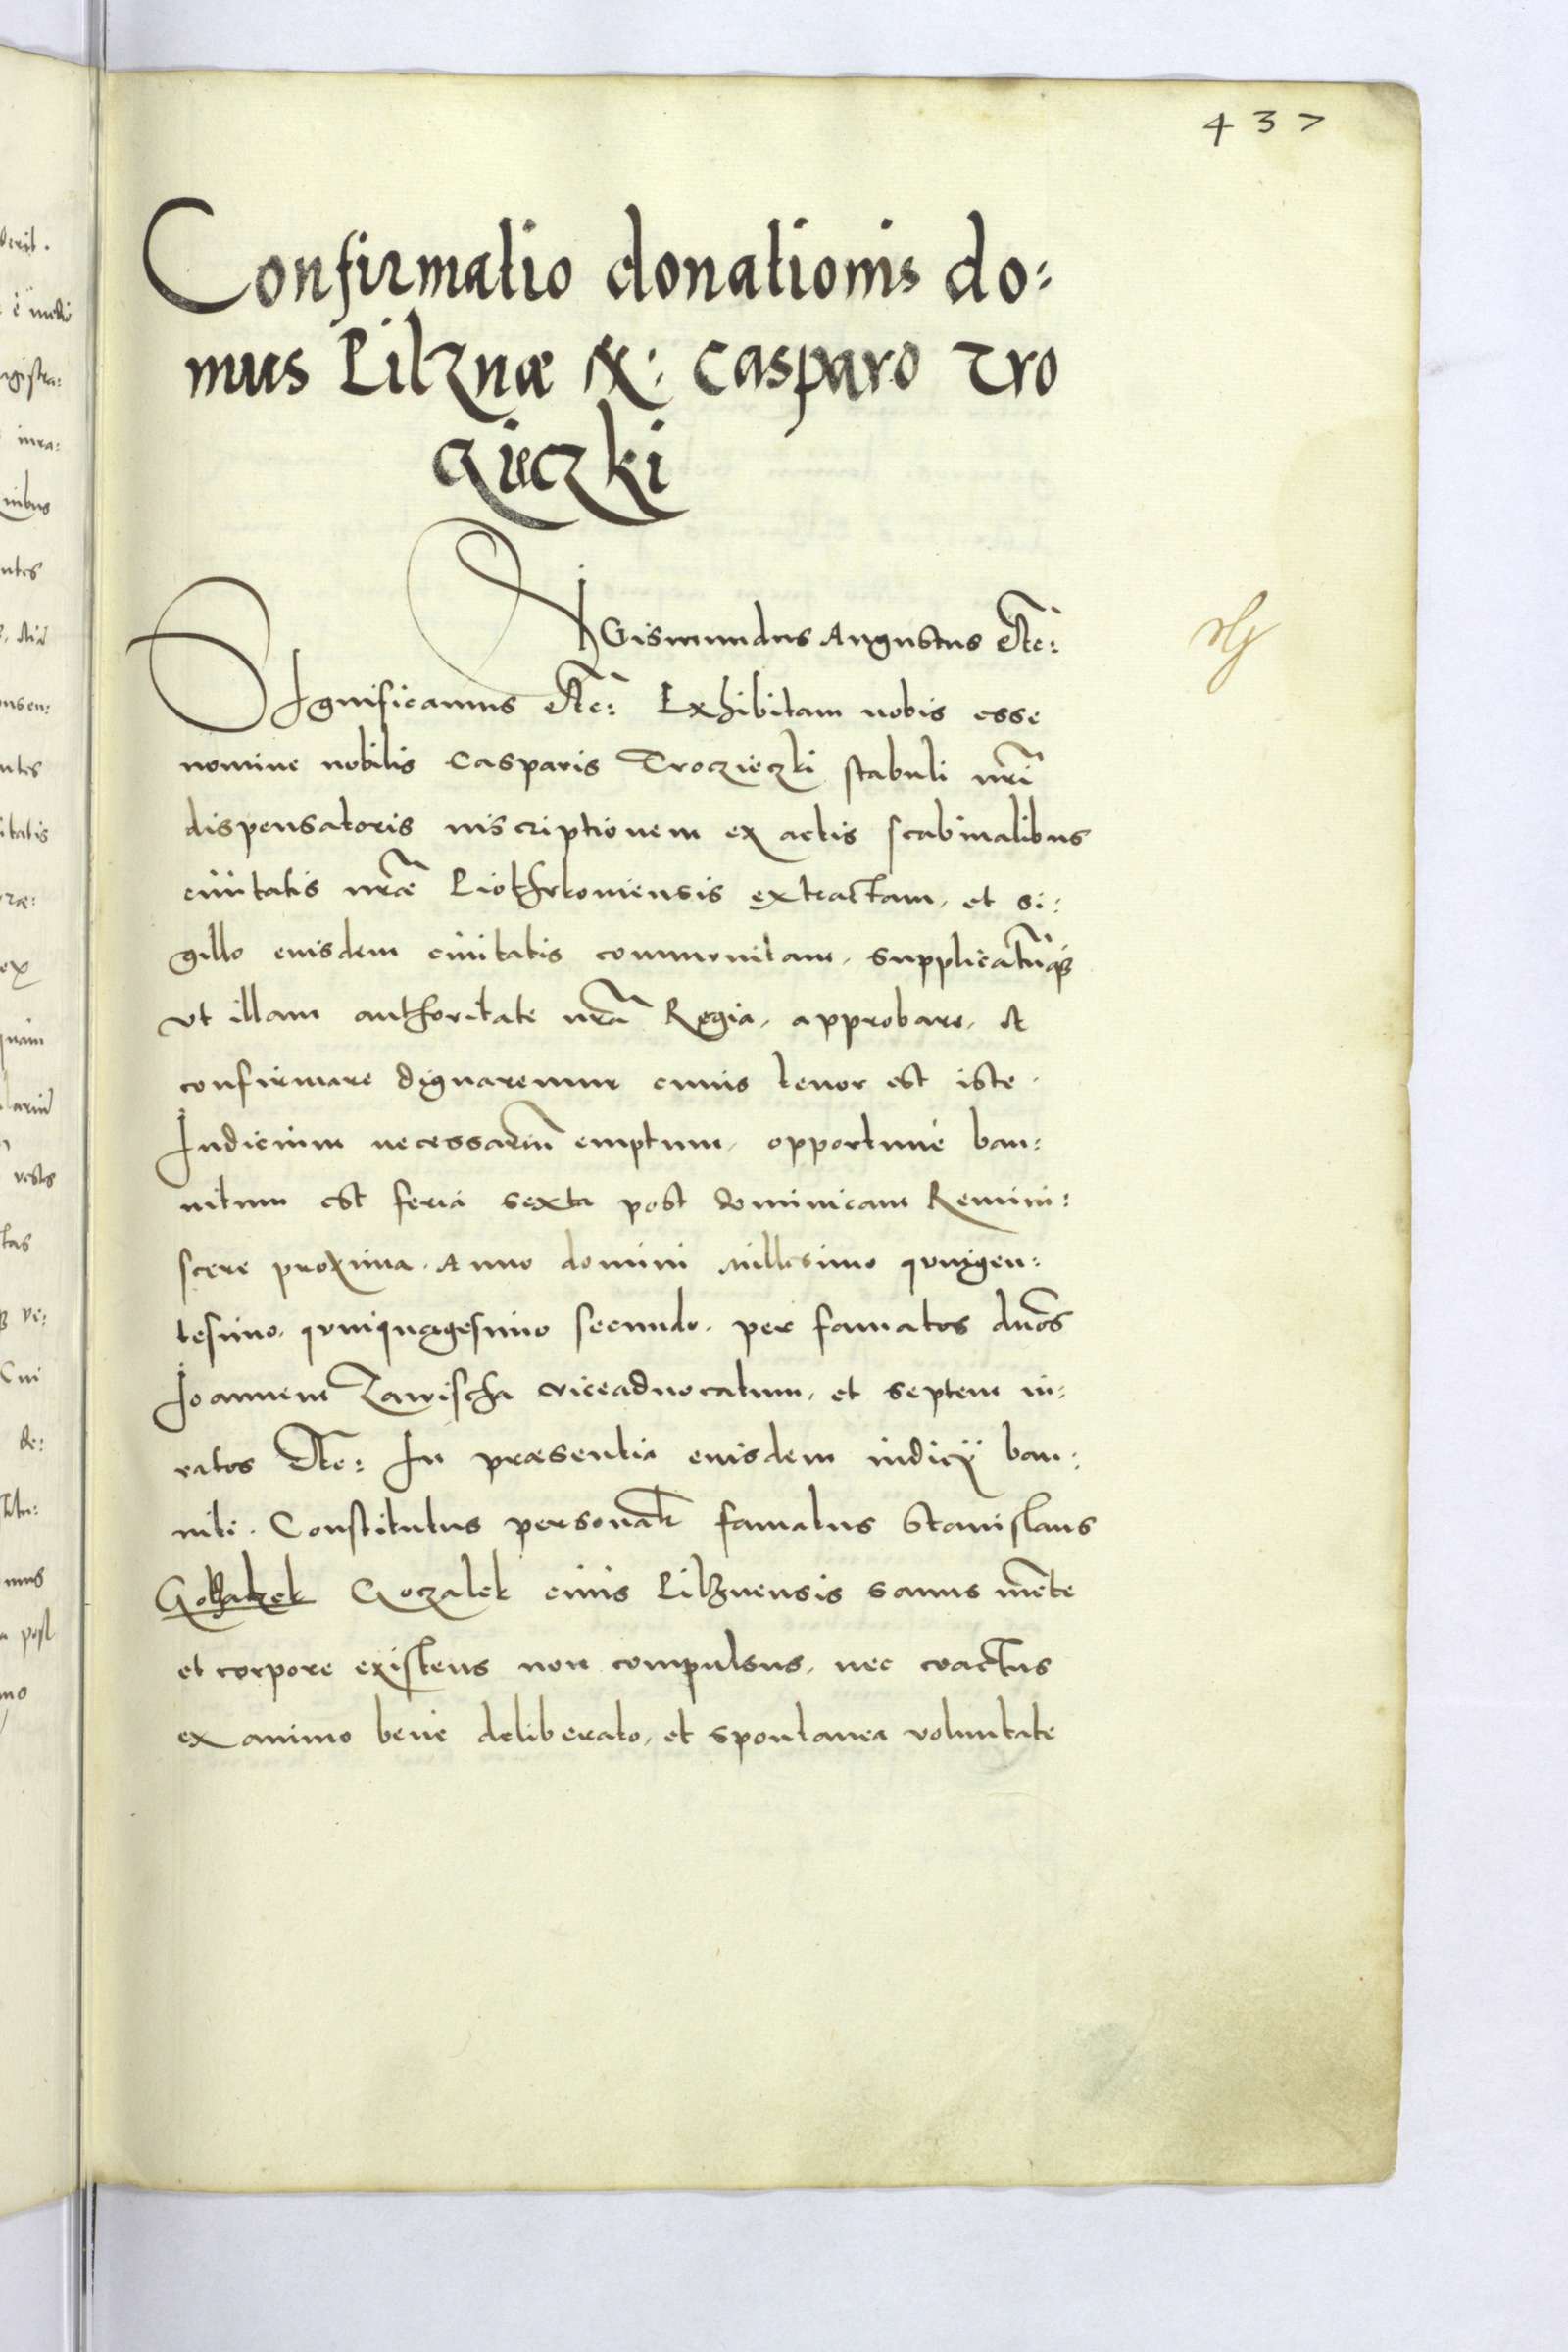 437
Confirmatio donationis do:
mus Pilznæ &: Casparo Tro
czieczki
SIGismundus Augustus Etc:
SIgnificamus Etc: Exhibitam nobis esse
nomine nobilis Casparis Troczieczki stabuli nrĩ
dispensatoris inscriptionem ex actis scabinalibus
ciuitatis nræ Piothrkouiensis extractam, et si:
gillo eiusdem ciuitatis communitam, supplicatũq3
vt illam authoritate nrã Regia, approbare, et
confirmare dignaremur cuius tenor est iste.
Iudicium necessariũ emptum, opportune ban:
nitum est feria sexta post dominicam Remini:
scere proxima. Anno domini Millesimo quingen:
tesimo, quinquagesimo secundo. per famatos dnos
Ioannem Zawischa viceaduocatum, et septem iu:
ratos Etc: In præsentia eiusdem iudicÿ ban:
niti. Constitutus personalr famatus Stanislaus
Goczalek ciuis Pilznensis sanus mẽte
et corpore existens non compulsus, nec coactus
ex animo bene deliberato, et spontanea voluntate